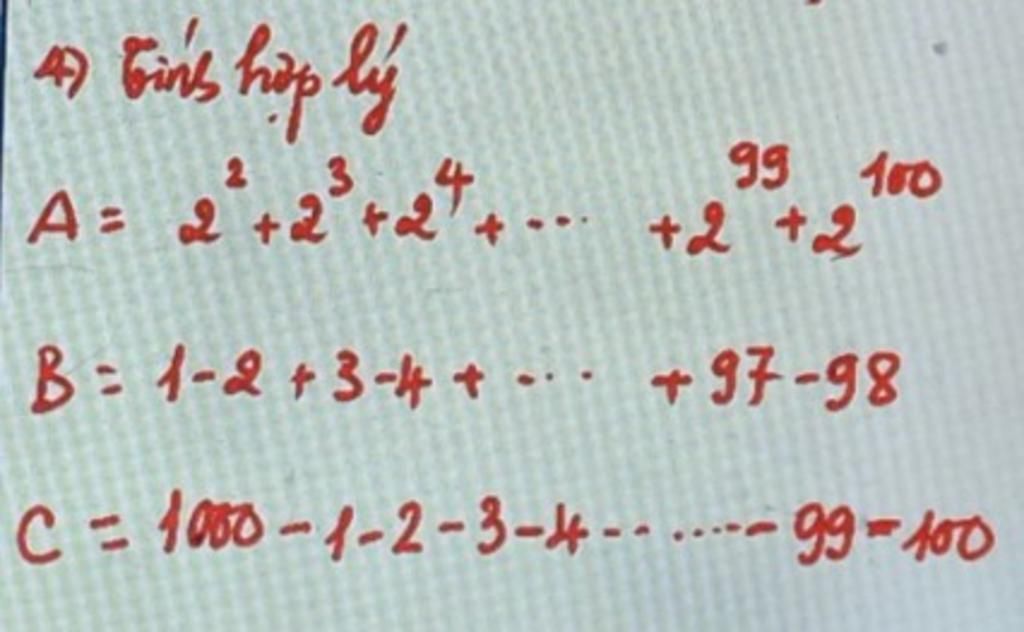 4) Tính hợp lý
A = 2² + 2³ + 2⁴ + ... + 2⁹⁹ + 2¹⁰⁰
B = 1 - 2 + 3 - 4 + ... + 97 - 98
C = 1000 - 1 - 2 - 3 - 4 - ...... - 99 - 100